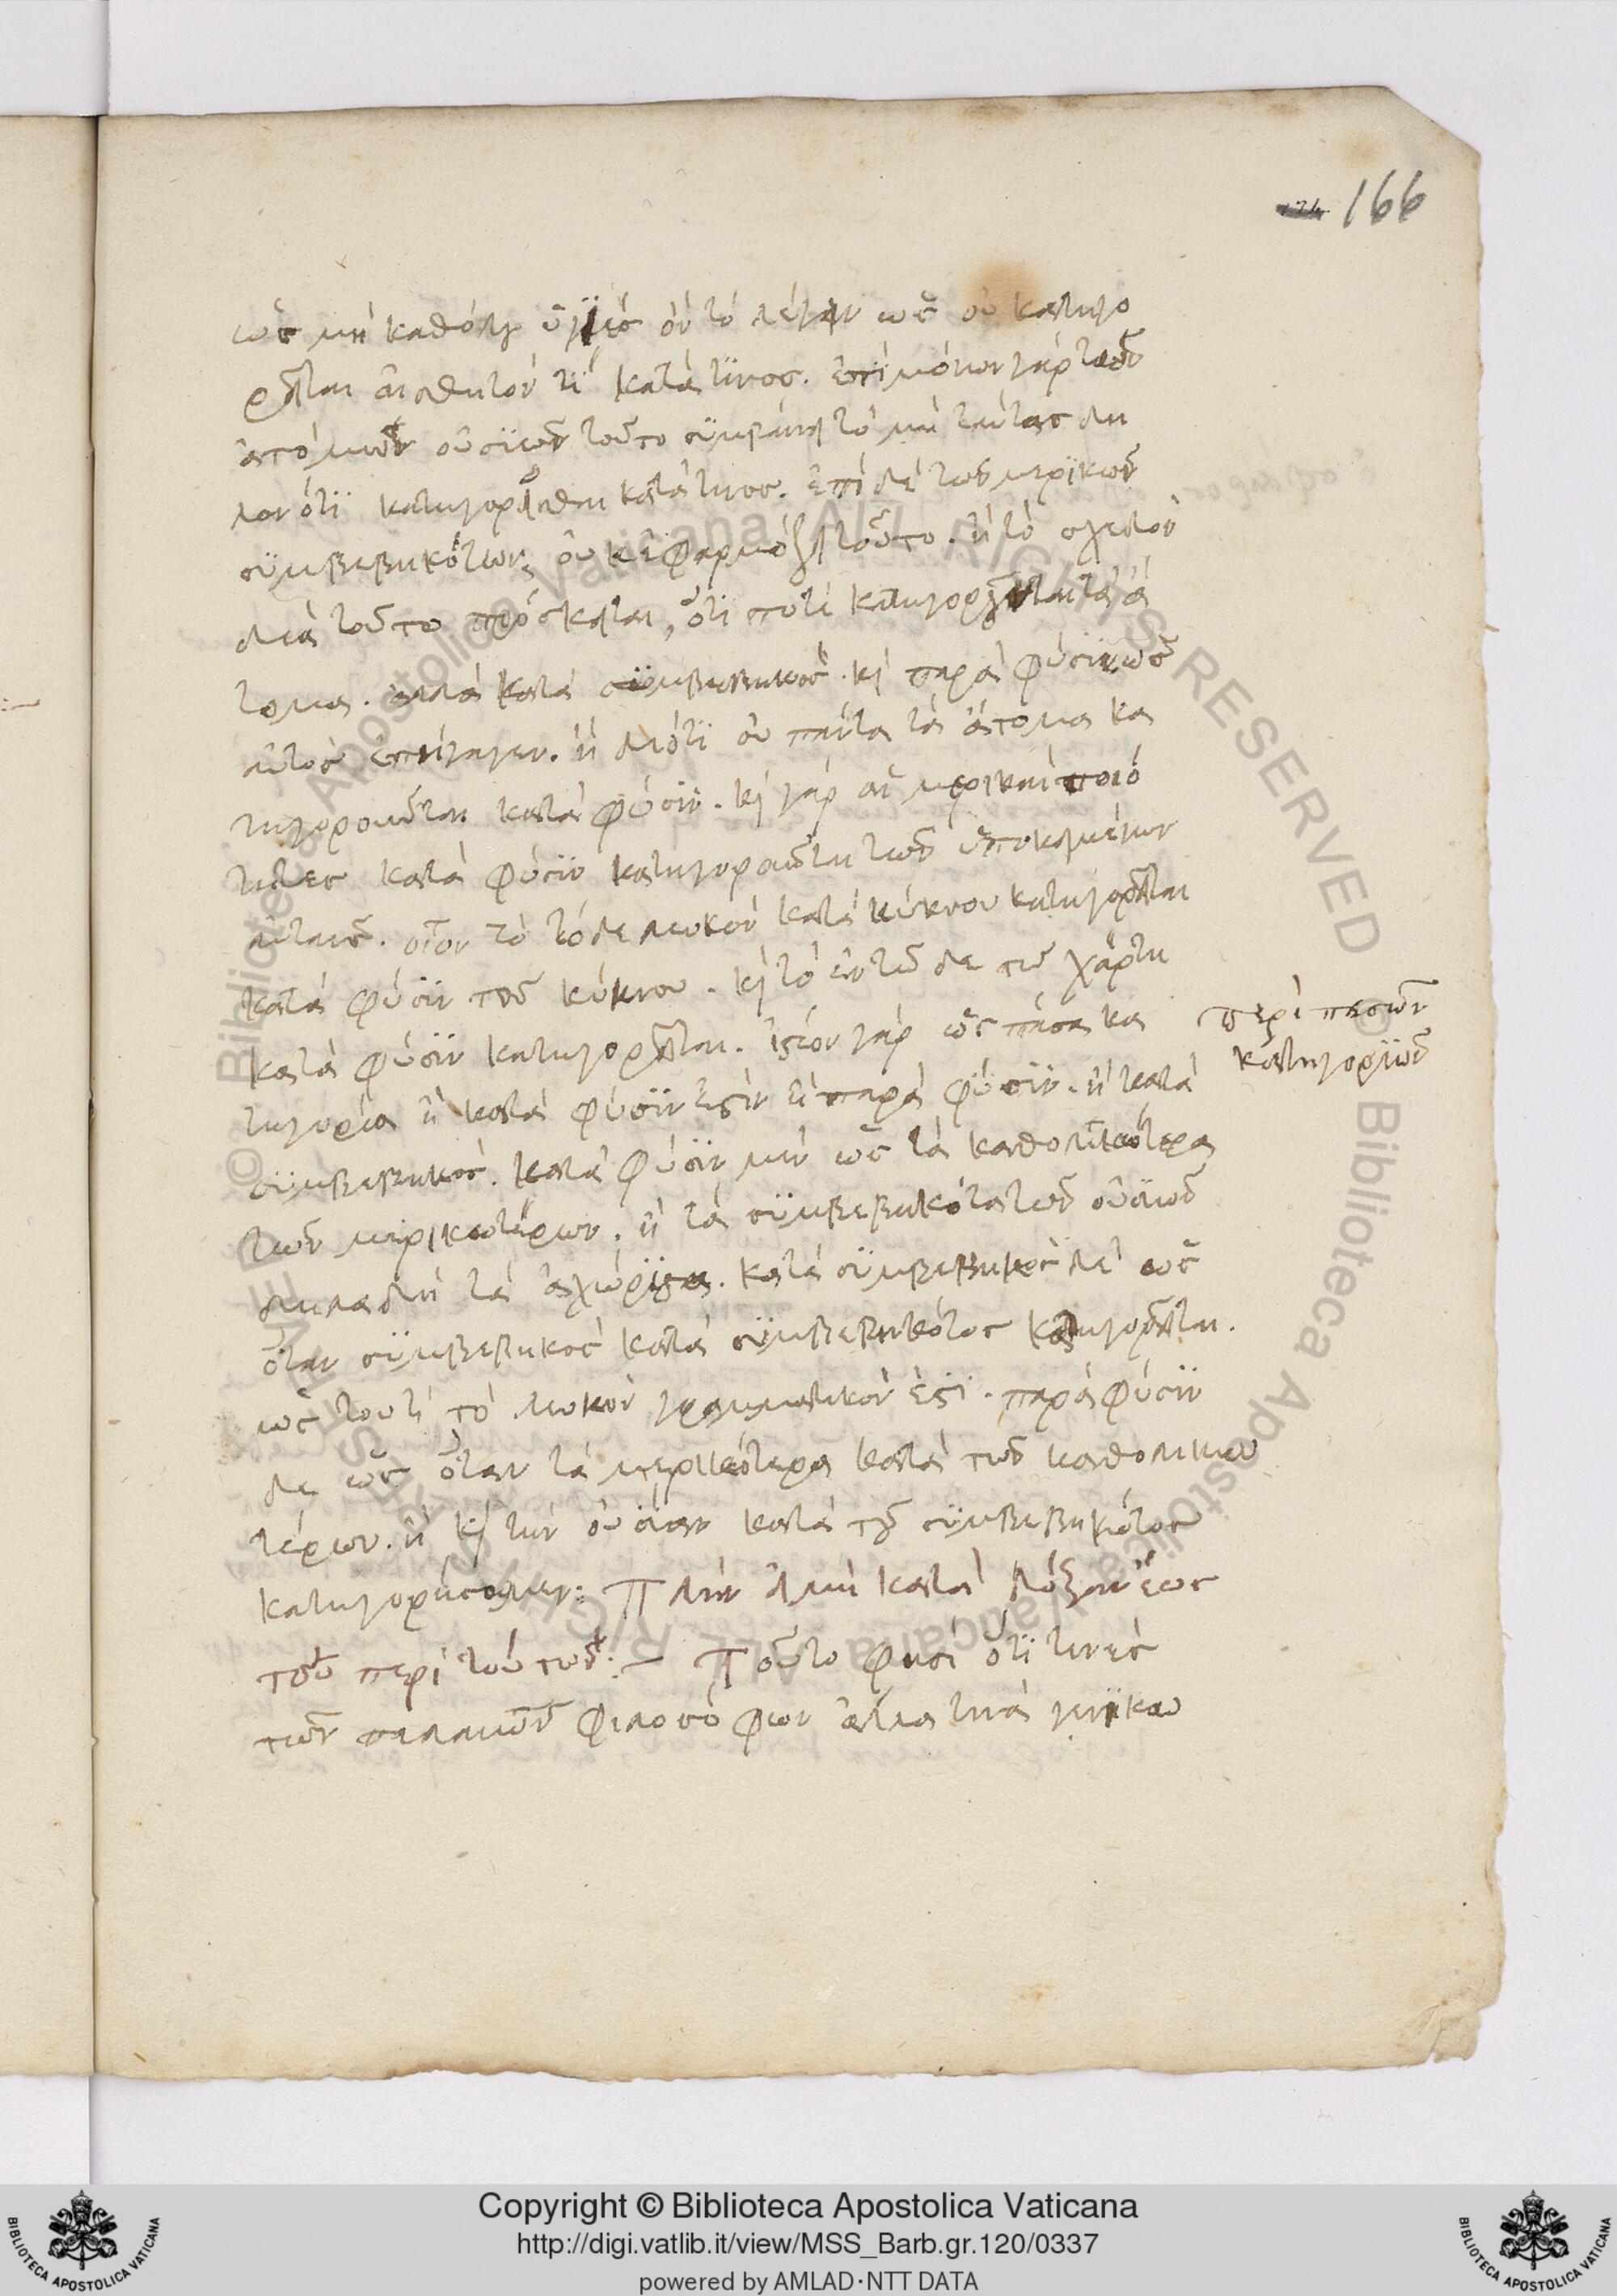 166
ὡς μὴ καθόλου ὑγιὲς ὂν τὸ λέγειν ὡς οὐ κατηγο
ρεῖται αἰσθητόν τι κατά τινος. ἐπὶ μόνον γὰρ τῶν
ἀτόμων οὐσιῶν τοῦτο συμβαίνει τὸ μὴ ταύτας δη
λονότι κατηγορεῖσθαι κατά τινος. ἐπὶ δὲ τῶν μερικῶν
συμβεβηκότων, οὐκ ἐφαρμόζει τοῦτο. ἢ τὸ σχεδὸν
διὰ τοῦτο πρόσκειται, ὅτι ποτὲ κατηγορεῖται τὰ ἄ
τομα. ἀλλὰ κατὰ συμβεβηκός. κὶ παρὰ φύσιν ὡς
αὐτὸς ἐπήγαγεν. ἢ διότι οὐ πάντα τὰ ἄτομα κα
τηγοροῦνται κατὰ φύσιν. κὶ γὰρ αἱ μερικαὶ ποιό
τητες κατὰ φύσιν κατηγοροῦνται τῶν ὑποκειμένων
αὐταῖς. οἷον τὸ τόδε λευκὸν κατὰ κύκνου κατηγορεῖται
κατὰ φύσιν τοῦ κύκνου. κὶ τὸ ἐν τῷδε τῷ χάρτη
κατὰ φύσιν κατηγορεῖται. ἰστέον γὰρ ὡς πᾶσα κα
τηγορία ἢ κατὰ φύσιν ἐστὶν ἢ παρὰ φύσιν. ἢ κατὰ
συμβεβηκός. κατὰ φύσιν μὲν ὡς τὰ καθολικώτερα
τῶν μερικωτέρων. ἢ τὰ συμβεβηκότα τῶν οὐσιῶν
δηλαδὴ τὰ ἀχώριστα. κατὰ συμβεβηκὸς δὲ ὡς
ὅταν συμβεβηκὸς κατὰ συμβεβηκότος κατηγορεῖται.
ὡς τουτὶ τὸ λευκὸν γραμματικόν ἐστι. παρὰ φύσιν
δὲ ὡς ὅταν τὰ μερικώτερα κατὰ τῶν καθολικω
τέρων. ἢ κὶ τὴν οὐσίαν κατὰ τοῦ συμβεβηκότος
κατηγορήσομεν: Πλὴν εἰ μὴ κατὰ δόξαν ἕως
τοῦ περὶ τούτων:— Τοῦτο φησὶ ὅτι τινὲς
τῶν παλαιῶν φιλοσόφων ἄλλα τινὰ γενικω
περὶ πασῶν
κατηγοριῶν
Copyright © Biblioteca Apostolica Vaticana
http://digi.vatlib.it/view/MSS_Barb.gr.120/0337
powered by AMLAD·NTT DATA
BIBLIOTECA APOSTOLICA VATICANA
BIBLIOTECA APOSTOLICA VATICANA
© Biblioteca Apostolica Vaticana ALL RIGHTS RESERVED
© Biblioteca Apostolica Vaticana ALL RIGHTS RESERVED